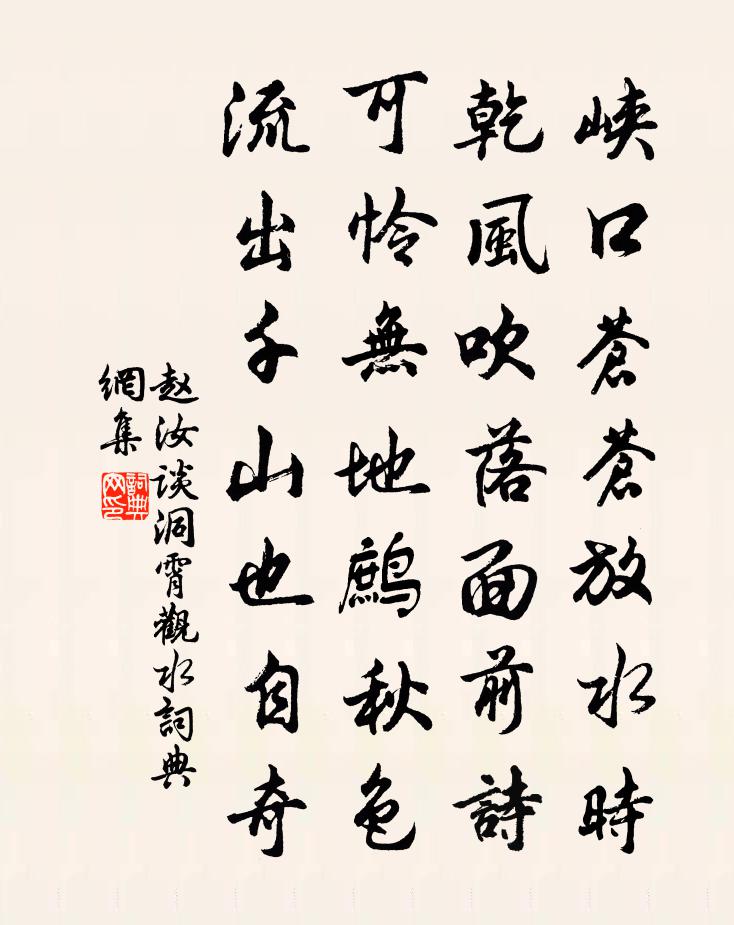 峡口蒼蒼放水時
乾風吹落面前詩
可怜無地鷓秋色
流出千山也自奇
赵汝谈洞霄觀水詞典
網集
詞典
网印